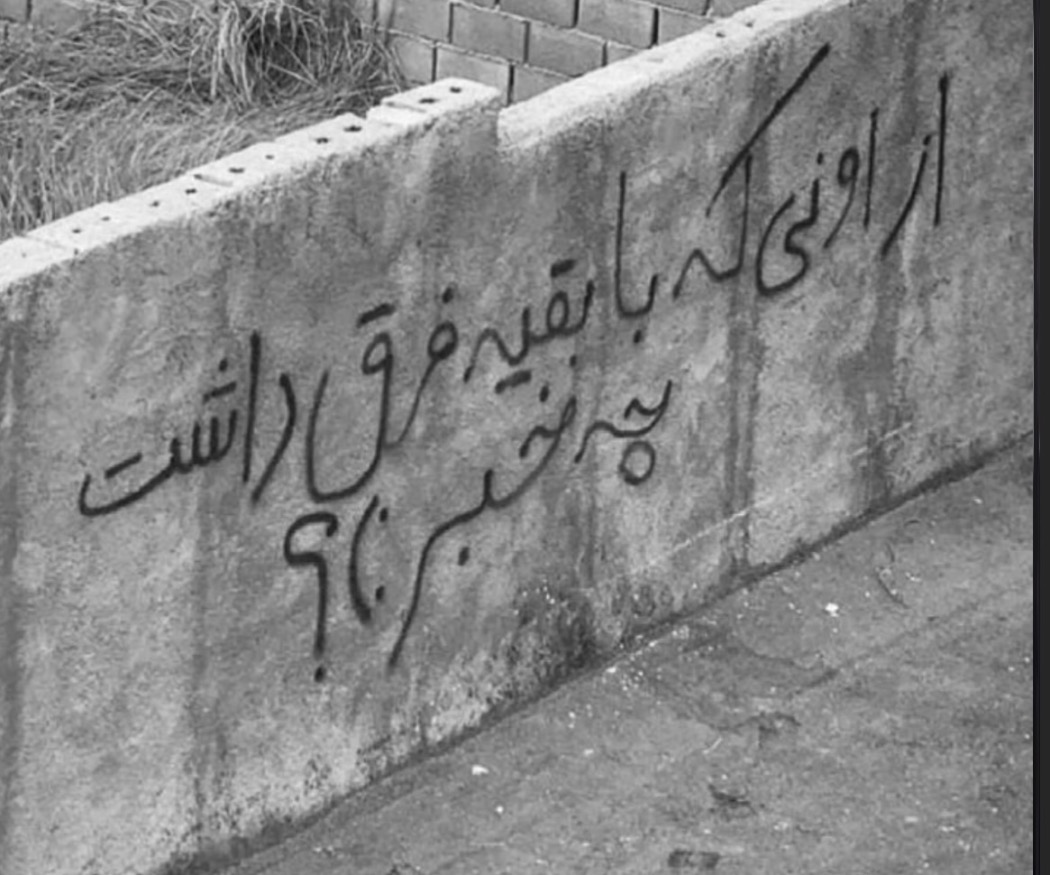 از اونی که با بقیه فرق داشت
چه خبر :)؟